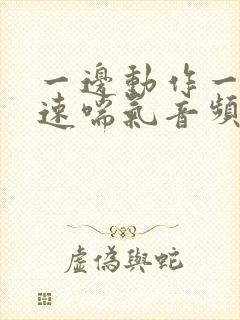 一邊動作一
速喘氣音頻
虛偽與蛇